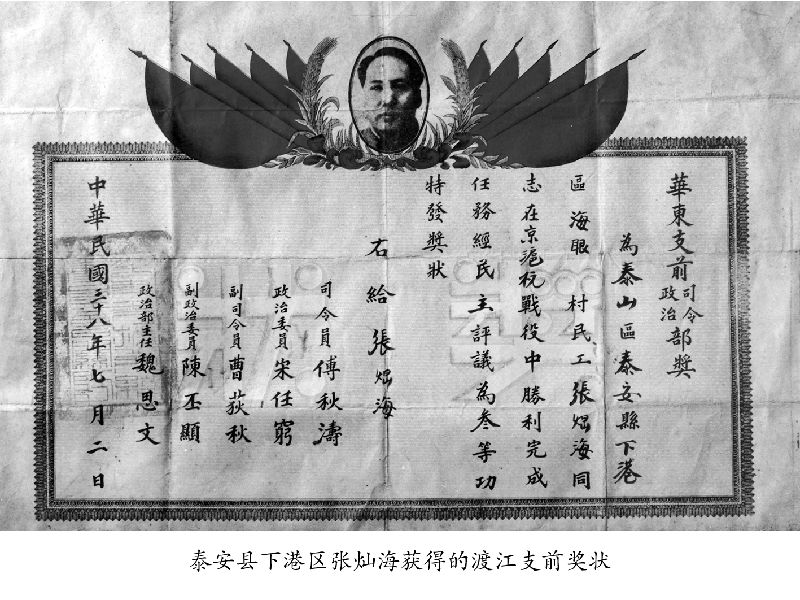 華東支前司令政治部獎
為泰山區泰安縣下港
區海眼村民工張灿海同
志在京滬杭戰役中勝利完成
任務經民主評議為叁等功
特發獎狀
右給張灿海
司令員傅秋濤
政治委員宋任窮
副司令員曹荻秋
副政治委員陳丕顯
政治部主任魏思文
中華民國三十八年七月二日
泰安县下港区张灿海获得的渡江支前奖状